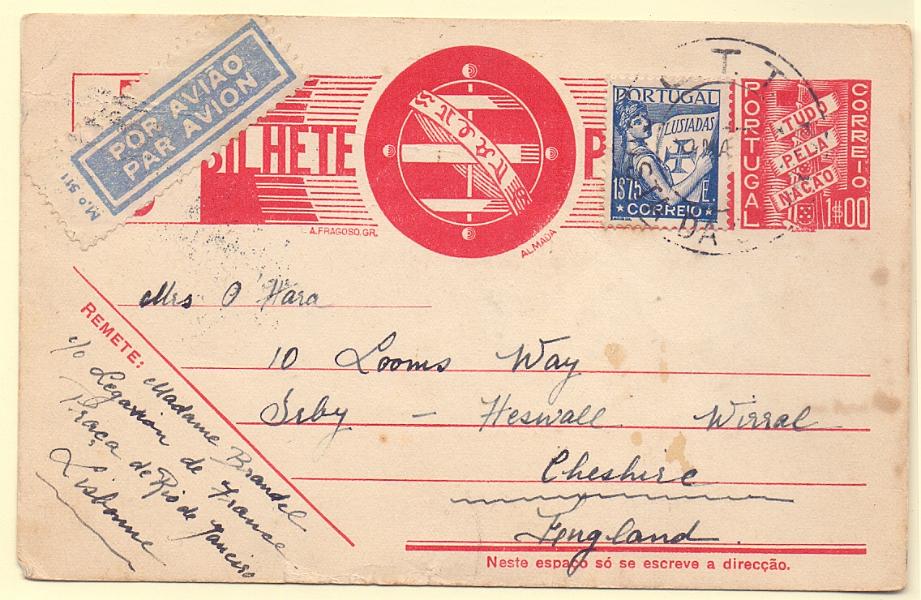 POR AVIÃO
PAR AVION
M.º 511
BILHETE
P
A.FRAGOSO.GR.
ALMADA
PORTUGAL
LUSIADAS
1$75 E.
CORREIO
T. T.
PORTUGAL
CORREIO
TUDO
PELA
NAÇÃO
1$00
Mrs O'Hara
10 Looms Way
Irby - Heswall Wirral
Cheshire
England
REMETE:
Madame Brandel
c/o Legation de France
Praça de Rio de Janeiro
Lisbonne
Neste espaço só se escreve a direcção.